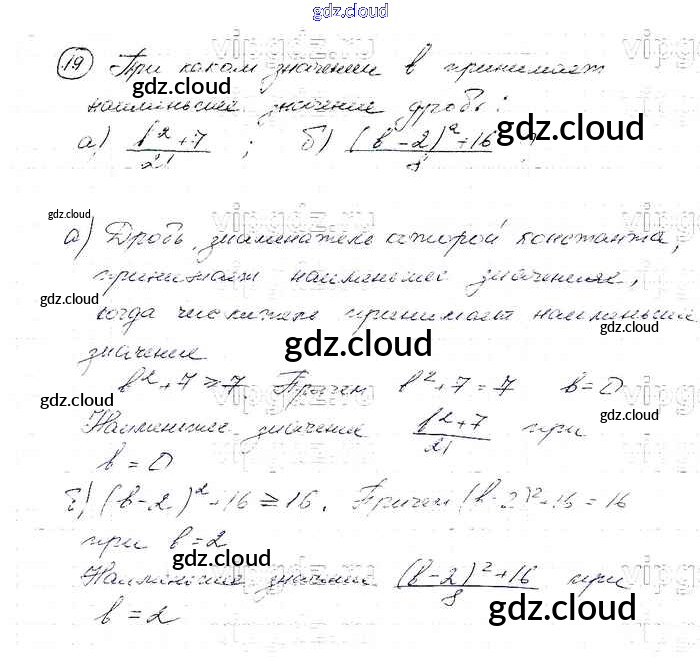 gdz.cloud
19 При каком значении b принимает
наименьшее значение дробь:
а) b² + 7 / 21 ; б) (b - 2)² + 16 / 8
а) Дробь, знаменатель которой константа,
принимает наименьшее значение,
когда числитель принимает наименьшее
значение
b² + 7 ≥ 7. Причем b² + 7 = 7 b = 0
Наименьшее значение b² + 7 / 21 при
b = 0
б) (b - 2)² + 16 ≥ 16. Причем (b - 2)² + 16 = 16
при b = 2
Наименьшее значение (b - 2)² + 16 / 8 при
b = 2
gdz.cloud